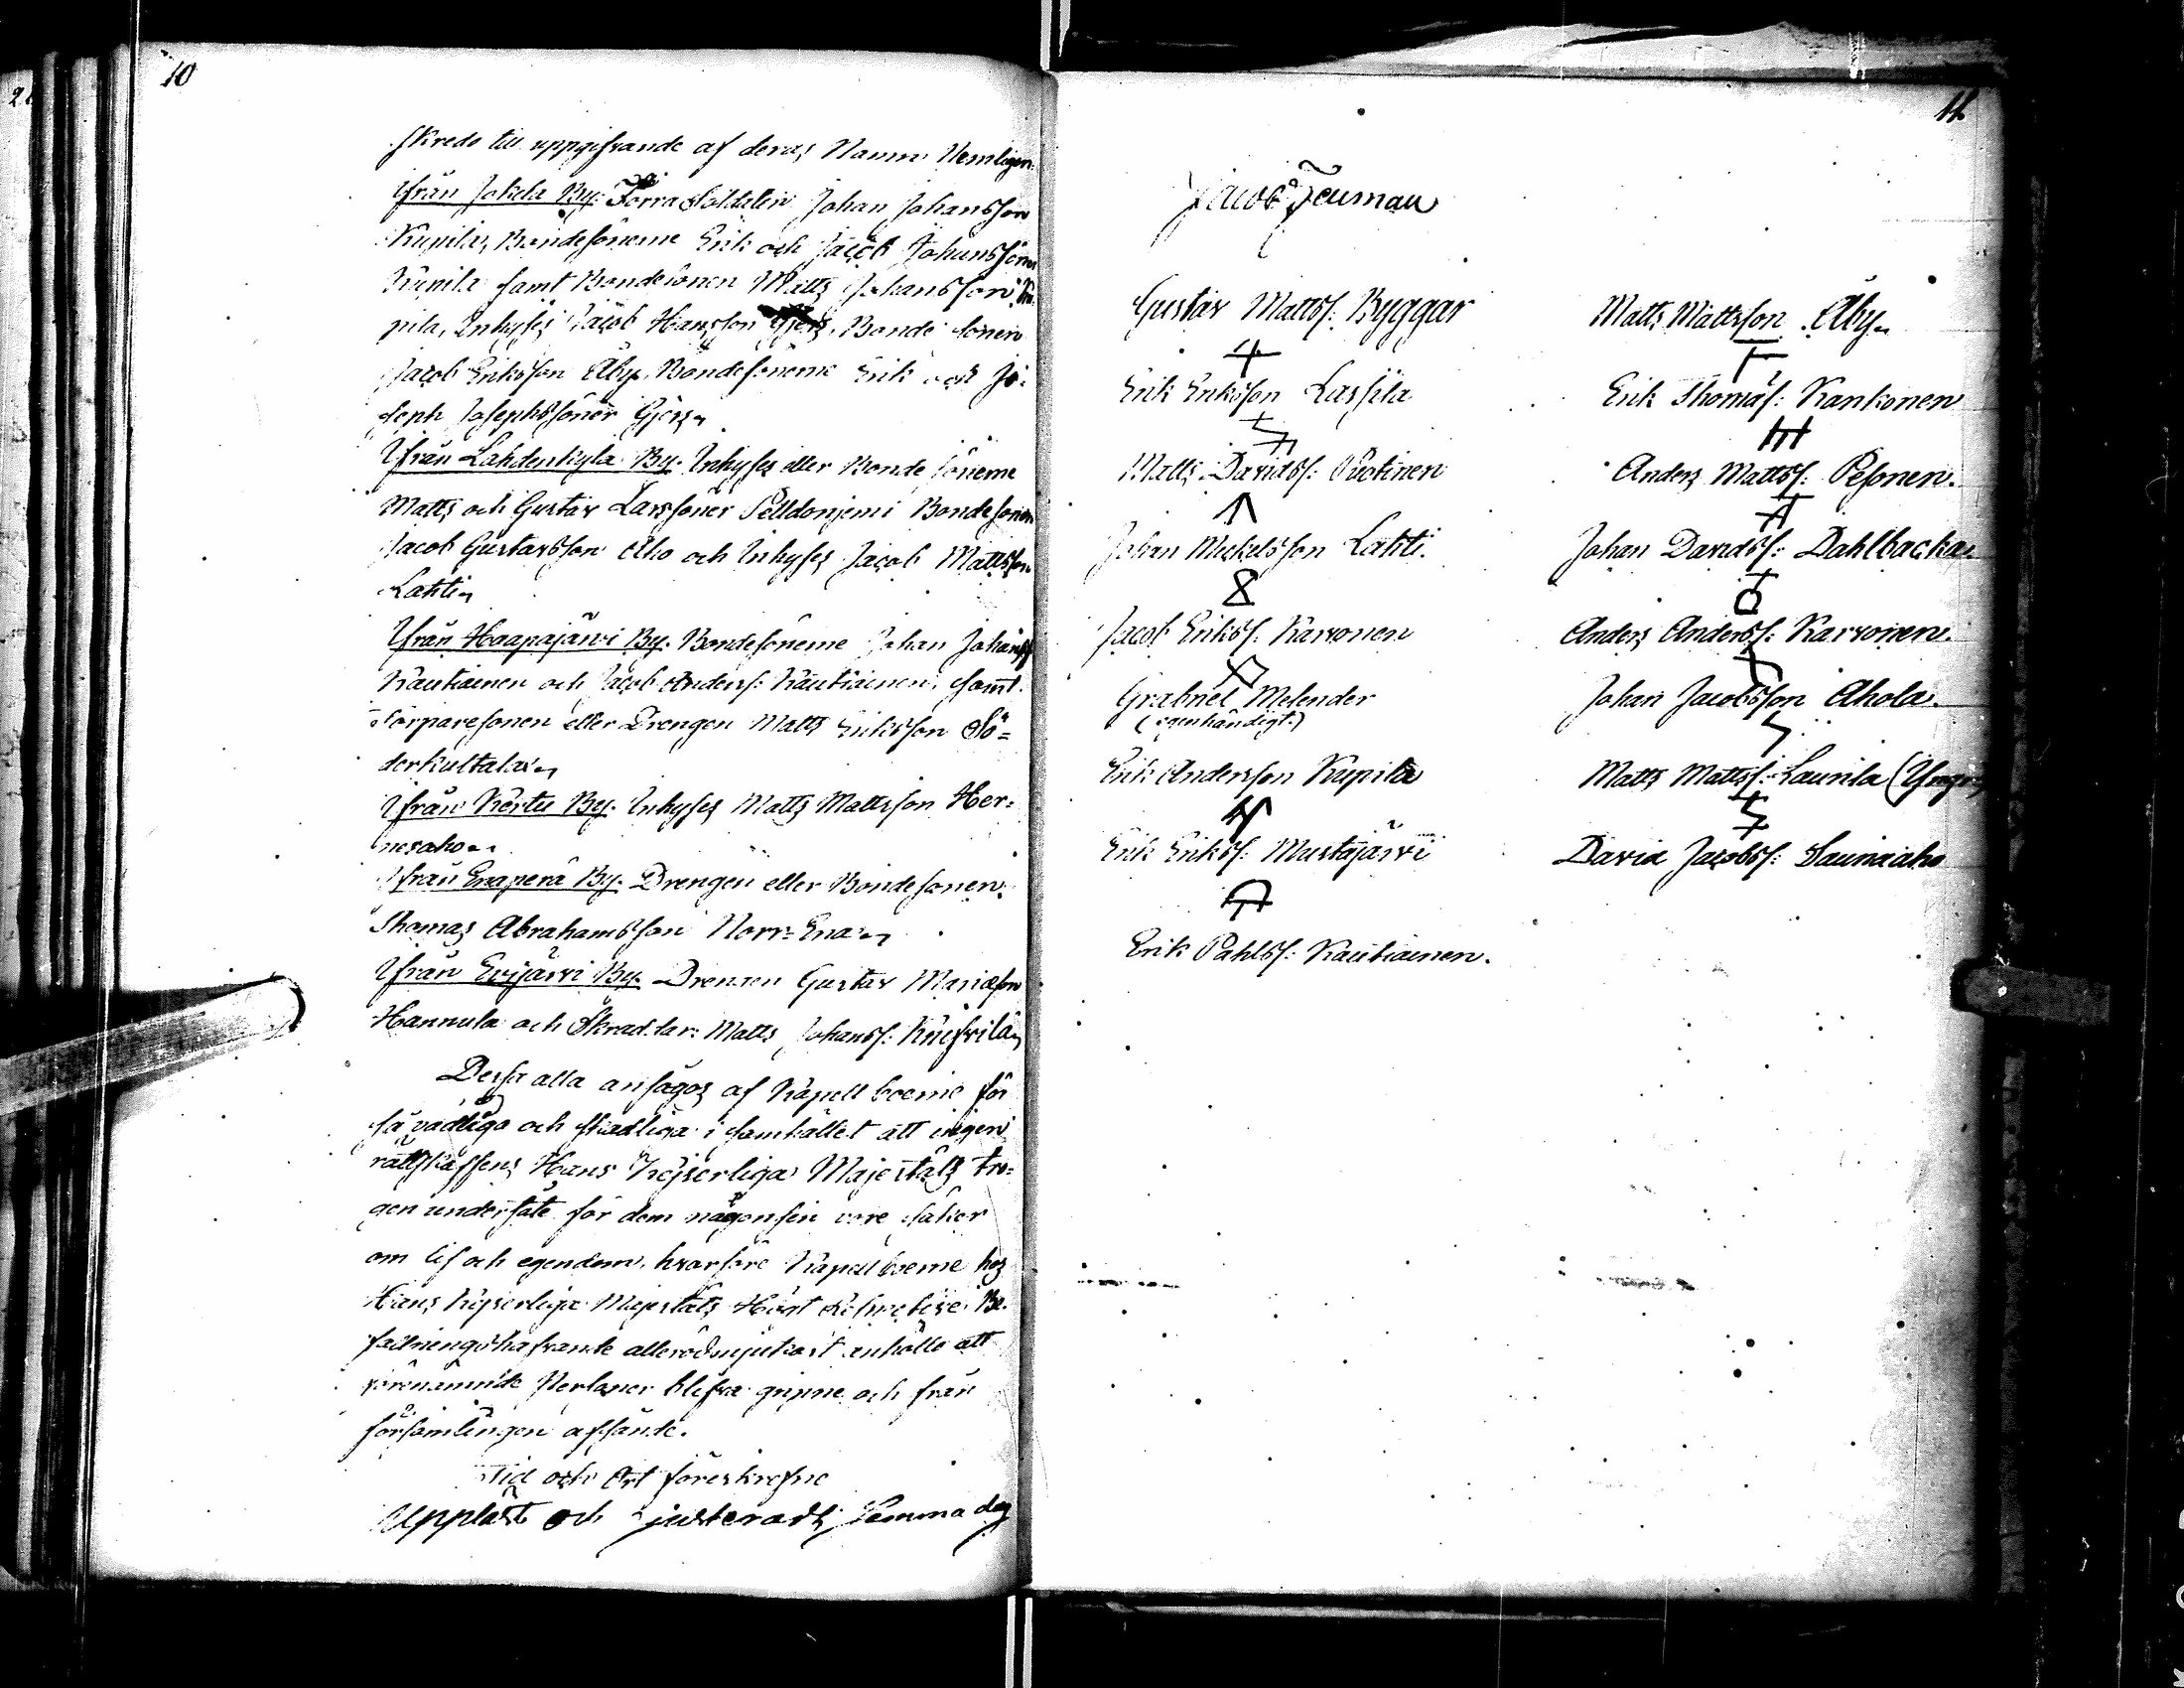 10
skredo till uppgifvande af deras Namn Nemligen:
ifrån Jokela By: Förra Soldaten Johan Johansson
Kupila, Bondesönerne Erik och Jacob Johanssöner
Kupila samt Bondesonen Matts Johansson Ku-
pila, Inhyses Jacob Hansson Gjers, Bonde sonen
Jacob Eriksson Åby, Bondesönerne Erik och Jo-
seph Josephssöner Gjers
Ifrån Lahdenkylä By: Inhyses eller Bonde sönerne
Matts och Gustav Larssöner Pelldoniemi Bondesonen
Jacob Gustavsson Aho och Inhyses Jacob Mattsson
Lahti
Ifrån Haapajärvi By: Bondesönerne Johan Johanss
Kautiainen och Jacob Anderss: Kautiainen, samt
Torparesonen eller Drengen Matts Eriksson Sö=
derkultalax
Ifrån Kertu By: Inhyses Matts Mattsson Her=
nesaho
Ifrån Enaperä By: Drengen eller Bondesonen
Thomas Abrahamsson Norr=Ena
Ifrån Evijärvi By: Drengen Gustav Mariæson
Hannula och Skradlar: Matts Johanss: Knifvilä
Dessa alla ansågos af Kapell boerne för
så vådliga och skadliga i samhället att ingen
rättskaffens Hans Kejserliga Majestäts tro=
gen undersåte för dem någonsin vore säker
om lif och egendom, hvarföre Kapellboerne hos
Hans Kejserliga Majestäts Högt Be-
fallningshafvande allerödmjukast anhålla att
förenämnde Personer blifva gripne och från
församlingen afsände.
Tid och Ort föreskrefne
Uppläst och justeradt Samma dag
11
Jacob Jeuman
Gustav Mattss: Byggar
Erik Eriksson Lassila
Matts Davidss: Puotinen
Johan Mickelsson Lahti.
Jacob Erikss: Karvonen
Grabriel Melender
(egenhändigt)
Erik Andersson Kupila
Erik Erikss: Mustajärvi
Erik Pahlss: Kautiainen.
Matts Mattsson Åby
Erik Thomass: Kankonen
Anders Mattss: Pesonen.
Johan Davidss: Dahlbacka
Anders Anderss: Karvonen.
Johan Jacobsson Ahola.
Matts Mattss: Laurila (Yngre)
David Jacobss: Sauniaho